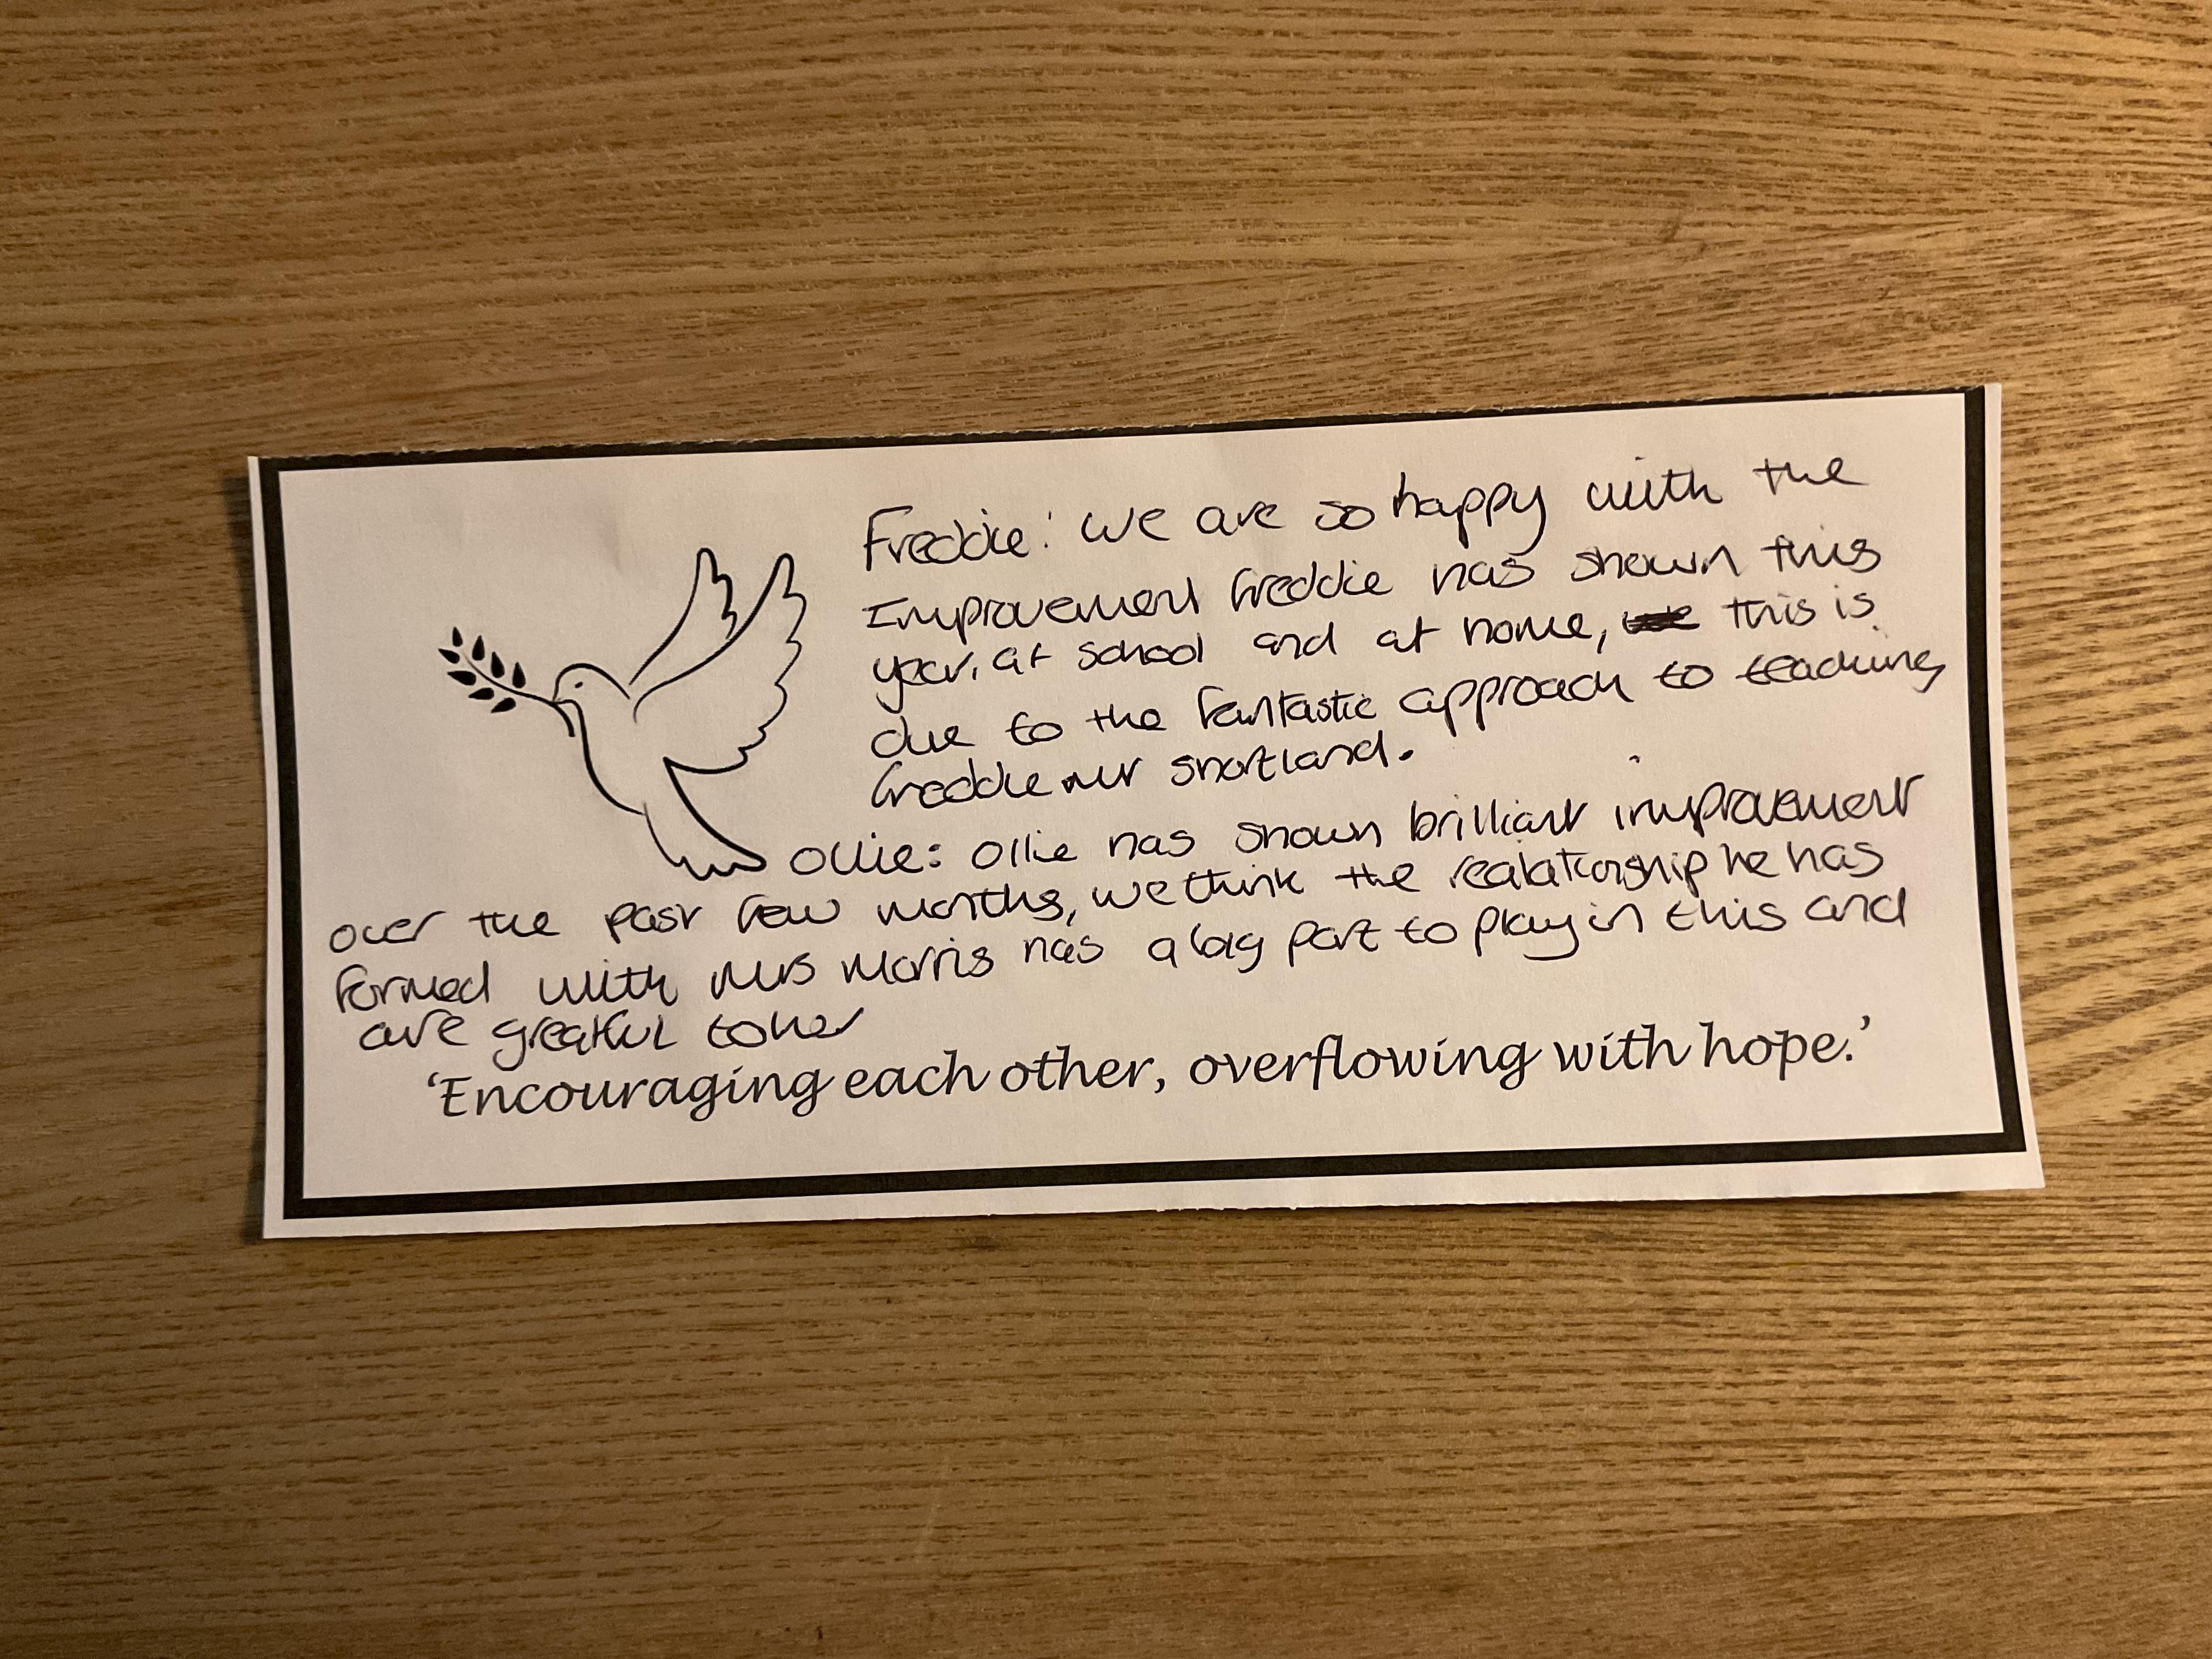 Freddie: We are so happy with the
Improvement Freddie has shown this
year, at school and at home, this is
due to the fantastic approach to teaching
Freddie mr shortland.
Ollie: Ollie has shown brilliant improvement
over the past few months, we think the realationship he has
formed with Mrs Morris has a big part to play in this and
are greatful to her
‘Encouraging each other, overflowing with hope.’